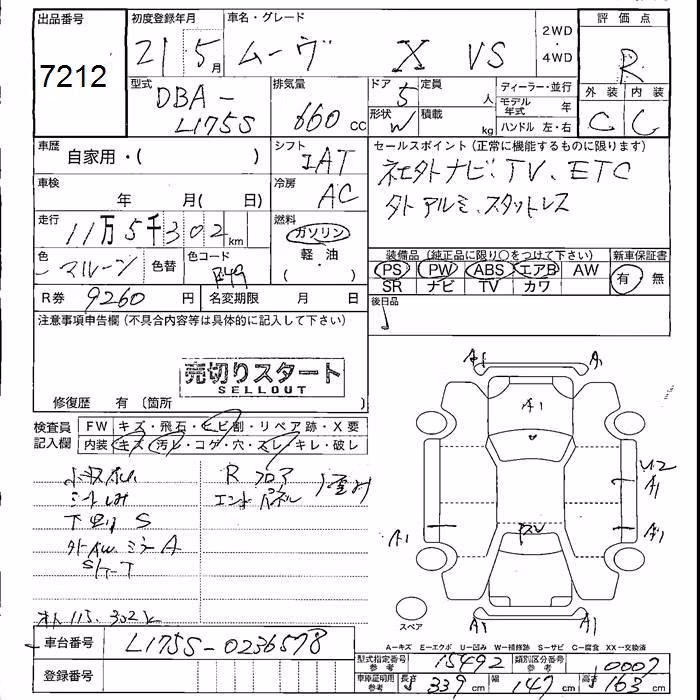 出品番号
7212
初度登録年月
21 5月
車名・グレード
ムーヴ X VS
2WD
・
4WD
評価点
R
外装 内装
C C
型式
DBA-
L175S
排気量
660 cc
ドア
5
定員
人
形状
W
積載
kg
ディーラー・並行
モデル年式 年
ハンドル 左・右
車歴
自家用・( )
シフト
IAT
セールスポイント(正常に機能するものに限ります)
TV、ETC
アルミ、スタットレス
車検
年 月( 日)
冷房
AC
走行
11万5千302km
燃料
ガソリン
軽・油
( )
色
マルーン
色替
色コード
R49
装備品(純正品に限り〇をつけて下さい)
PS PW ABS エアB AW
SR ナビ TV カワ
新車保証書
有・無
R券 9260 円
名変期限 月 日
後日品
注意事項申告欄(不具合内容等は具体的に記入して下さい)
売切りスタート
SELLOUT
修復歴 有(箇所 )
検査員
記入欄
FW キズ・飛石・ヒビ割・リペア跡・X要
内装 キズ・汚レ・コゲ・穴・スレ・キレ・破レ
R フロア
エンドパネル
シートしみ
下廻り S
ミラー A
S/T-T
115.302k
A1 A1
A1
U2
A1
A1 A1
スレ
A1 A1
スペア
A-キズ E-エクボ U-凹み W-補修跡 S-サビ C-腐食 XX-交換済
車台番号 L175S-0236578
登録番号
型式指定番号 参考 15492
類別区分番号 参考 0007
車庫証明用 参考 長さ 339 cm 幅 147 cm 高さ 163 cm